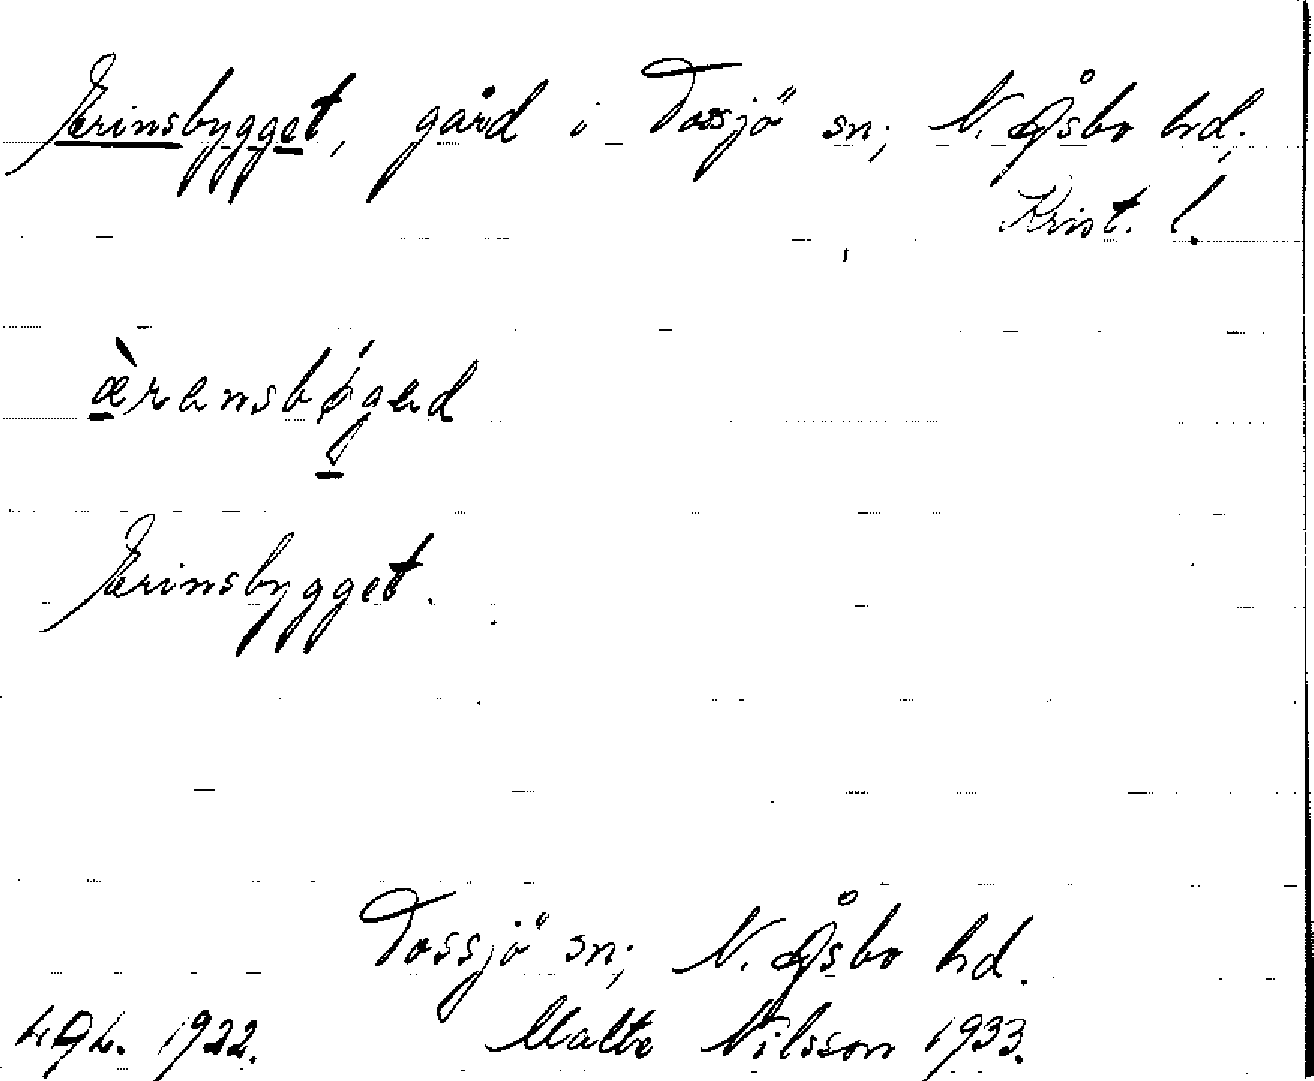 Ærinsbygget, gård i Tossjö sn; N. Åsbo hd;
Krist. l.
ǽrensbøged
Ærinsbygget.
Tossjö sn; N. Åsbo hd.
1922. Malte Nilsson 1933.